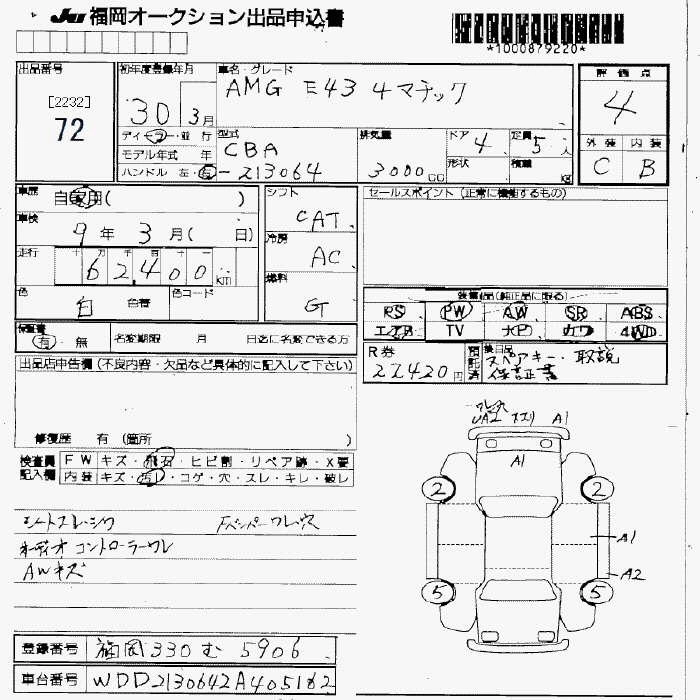 JU 福岡オークション出品申込書
*1000879220*
出品番号 [2232] 72
初年度登録年月 30 3月
車名・グレード AMG E43 4マチック
評価点 4
外装 C 内装 B
ディーラー・並行
モデル年式 年
ハンドル 左・右
型式 CBA-213064
排気量 3000CC
ドア 4 定員 5人
形状 積載 KG
車歴 自家用( )
車検 9年3月( 日)
走行 十万千百十 62,400km
色 白 色替 色コード
シフト CAT
冷房 AC
燃料 G
セールスポイント (正常に機能するもの)
装備品(純正品に限る)
PS PW AW SR ABS
エアB TV ナビ カワ 4WD
保証書 有・無 名変期限 月 日迄に名変できる方
R券 22,420円
預託済
後日品 スペアキー・取説
保証書
出品店申告欄(不良内容・欠品など具体的に記入して下さい)
修復歴 有 (箇所 )
検査員記入欄
FW キズ・飛石・ヒビ割・リペア跡・X要
内装 キズ・汚レ・コゲ・穴・スレ・キレ・破レ
シートスレ・シワ Fバンパーワレ
オーディオコントローラーワレ
AWキズ
ワレ UA2 スリ A1
A1
2 2
A1
A2
5 5
登録番号 福岡 330 む 5906
車台番号 WDD2130642A405182